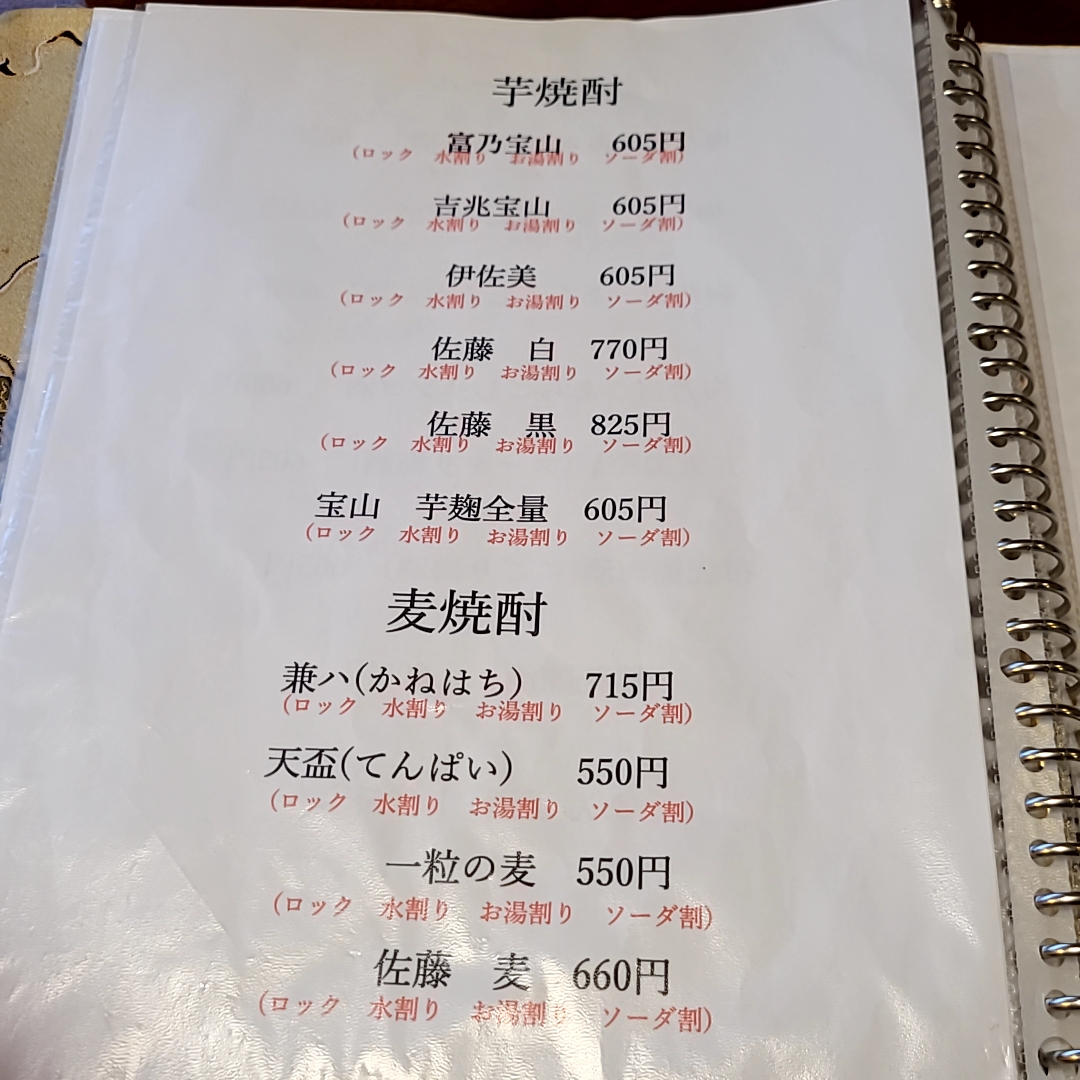 芋焼酎
富乃宝山　605円
（ロック　水割り　お湯割り　ソーダ割）
吉兆宝山　605円
（ロック　水割り　お湯割り　ソーダ割）
伊佐美　605円
（ロック　水割り　お湯割り　ソーダ割）
佐藤　白　770円
（ロック　水割り　お湯割り　ソーダ割）
佐藤　黒　825円
（ロック　水割り　お湯割り　ソーダ割）
宝山　芋麹全量　605円
（ロック　水割り　お湯割り　ソーダ割）
麦焼酎
兼ハ(かねはち）　715円
（ロック　水割り　お湯割り　ソーダ割）
天盃(てんぱい）　550円
（ロック　水割り　お湯割り　ソーダ割）
一粒の麦　550円
（ロック　水割り　お湯割り　ソーダ割）
佐藤　麦　660円
（ロック　水割り　お湯割り　ソーダ割）